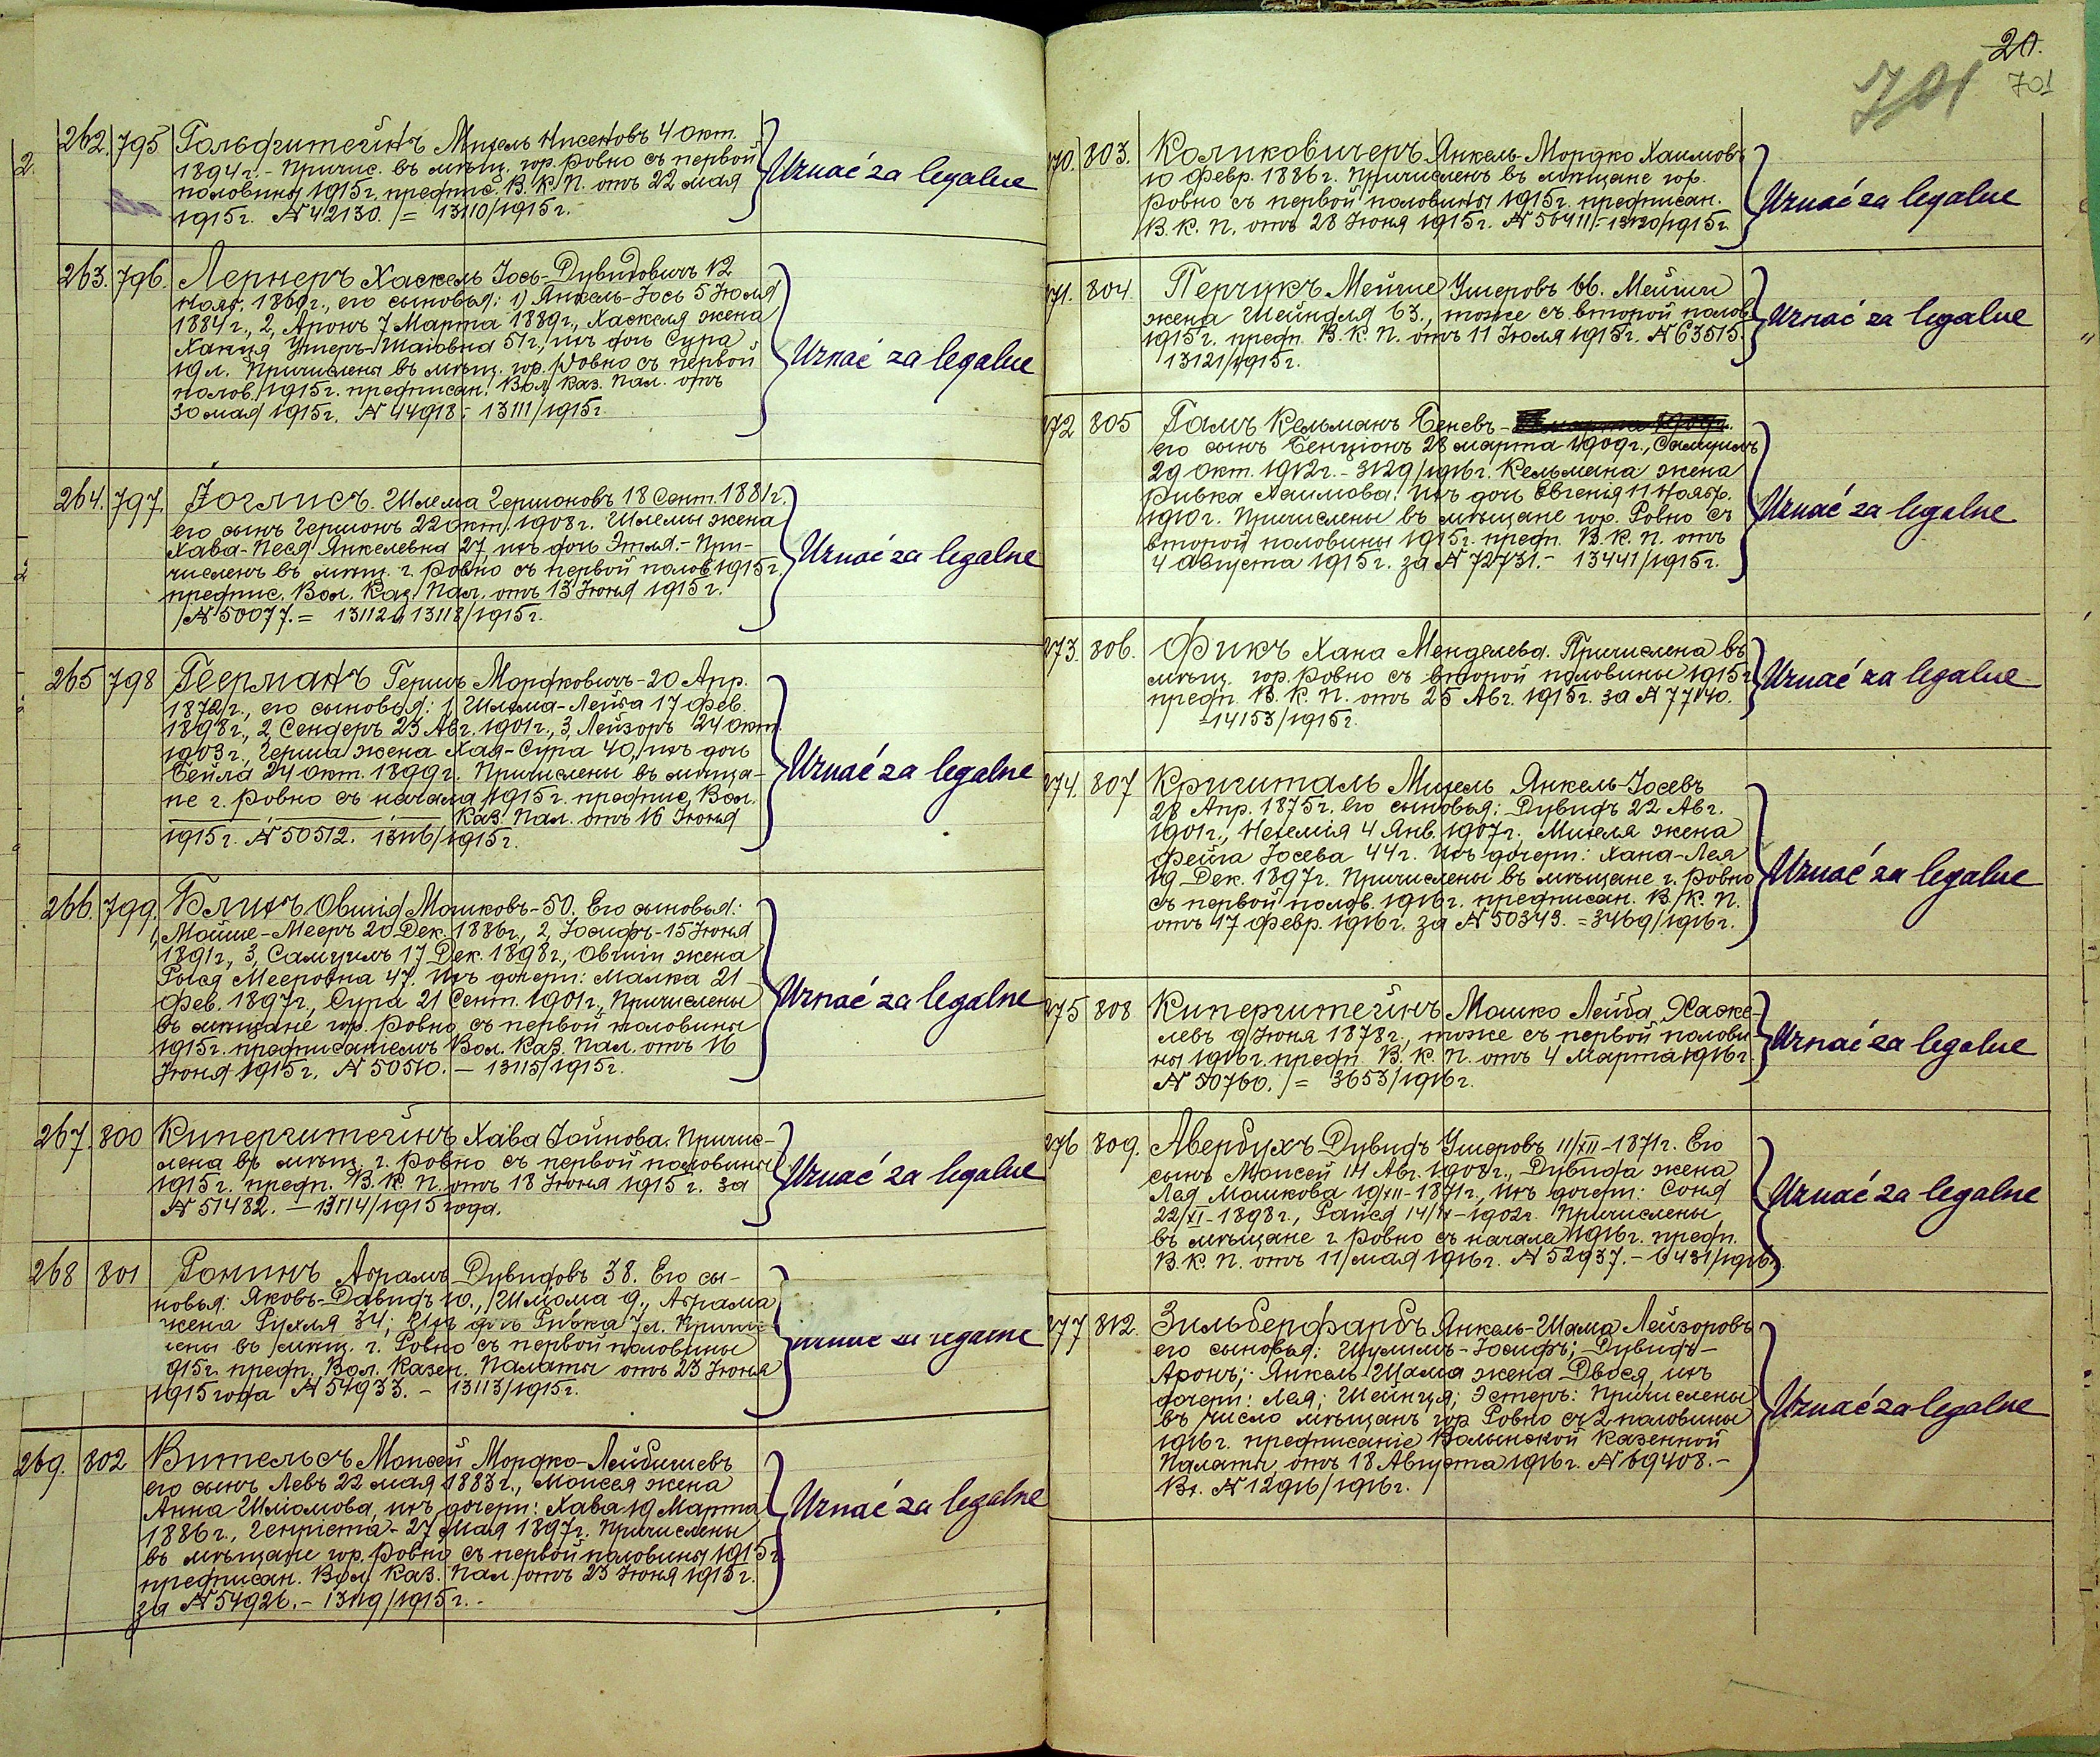 20.
701
701
262. 795 Гольдштейнъ Михель Нисеновъ 4 Окт.
1894 г. - Причис. въ мѣщ. гор. Ровно съ первой
половины 1915 г. предпис. В. К. П. отъ 22 мая
1915 г. № 42130. = 13110/1915 г.
Uznać za legalne
263. 796. Лернеръ Хаскель Іось-Дувидовичъ 12
Нояб. 1860 г., его сыновья: 1) Янкель-Іось 5 Іюля
1884 г., 2, Аронъ 7 Марта 1889 г., Хаскеля жена
Ханця Ушеръ-Шаiовна 51 г., ихъ дочь Сура
19 л. Причислены въ мѣщ. гор. Ровно съ первой
полов. 1915 г. предписан. Вол. Каз. Пал. отъ
30 мая 1915 г. № 44918 - 13111/1915 г.
Uznać za legalne
264. 797. Іоглисъ Шлема Гершоновъ 18 Сент. 1881 г.
его сынъ Гершонъ 22 окт. 1908 г. Шлемы жена
Хава-Песя Янкелевна 27, ихъ дочь Этля. - При-
численъ въ мѣщ. г. Ровно съ первой полов. 1915 г.
предпис. Вол. Каз. Пал. отъ 13 Іюня 1915 г.
№ 50077. = 13112 и 13118/1915 г.
Uznać za legalne
265 798 Геерманъ Гершъ Мордковичъ - 20 Апр.
1872 г., его сыновья: 1, Шлема-Лейба 17 Фев.
1898 г., 2, Сендеръ 23 Авг. 1901 г., 3, Лейзоръ 24 Окт.
1903 г., Герша жена Хая-Сура 40, ихъ дочь
Бейла 24 Окт. 1899 г. Причислены въ мѣща-
не г. Ровно съ начала 1915 г. предпис. Вол.
Каз. Пал. отъ 16 Іюня
1915 г. № 50512. 13116/1915 г.
Uznać za legalne
266. 799. Блихъ Овшія Мошковъ - 50. Его сыновья:
1, Мойше-Мееръ 20 Дек. 1886 г., 2, Іосифъ - 15 Іюня
1891 г., 3, Самуилъ 17 Дек. 1898 г., Овшiи жена
Рыся Мееровна 47. Ихъ дочери: Малка 21
Фев. 1897 г., Сура 21 Сент. 1901 г., Причислены
въ мѣщане гор. Ровно съ первой половины
1915 г. предписаніемъ Вол. Каз. Пал. отъ 16
Іюня 1915 г. № 50510. - 13115/1915 г.
Uznać za legalne
267. 800 Куперштейнъ Хава Іойнова. Причис-
лена въ мѣщ. г. Ровно съ первой половины
1915 г. предп. В. К. П. отъ 18 Іюня 1915 г. за
№ 51482. - 13114/1915 года.
Uznać za legalne
268 801 Ронинъ Абрамъ Дувидовъ 38. Его сы-
новья: Яковъ-Давидъ 10., Шліома 9., Абрама
жена Рухля 34; Ихъ дочь Ривка 7 л. Причис-
лены въ мѣщ. г. Ровно съ первой половины
915 г. предп. Вол. Казен. Палаты отъ 23 Іюня
1915 года № 54933. - 13113/1915 г.
Uznać za legalne
269. 802 Вительсъ Моисей Мордко-Лейбишевъ
его сынъ Левъ 22 мая 1883 г., Моисея жена
Анна Шліомова, ихъ дочери: Хава 19 Марта
1886 г., Генріета - 27 Мая 1897 г. Причислены
въ мѣщане гор. Ровно съ первой половины 1915 г.
предписан. Вол. Каз. Пал. отъ 23 Іюня 1915 г.
за № 54926. - 13119/1915 г. -
Uznać za legalne
270. 803. Коликовичеръ Янкель-Мордко Хаимовъ
10 Февр. 1886 г. Причисленъ въ мѣщане гор.
Ровно съ первой половины 1915 г. предписан.
В. К. П. отъ 28 Іюня 1915 г. № 56411 - 13120/1915 г.
Uznać za legalne
271. 804 Перчикъ Мейше Ушеровъ 66. Мейши
жена Шейндля 63., тоже съ второй полов.
1915 г. предп. В. К. П. отъ 11 Іюля 1915 г. № 63515.
13121/1915 г.
Uznać za legalne
272 805 Гамъ Кельманъ Беневъ -
его сынъ Бенціонъ 28 марта 1909 г., Самуилъ
29 Окт. 1912 г. - 3129/1916 г. Кельмана жена
Ривка Хаимова. Ихъ дочь Евгенія 11 Нояб.
1910 г. Причислены въ мѣщане гор. Ровно съ
второй половины 1915 г. предп. В. К. П. отъ
4 Августа 1915 г. за № 72731. - 13441/1915 г.
Uznać za legalne
273. 806. Фикъ Хана Менделева. Причислена въ
мѣщ. гор. Ровно съ второй половины 1915 г.
предп. В. К. П. отъ 25 Авг. 1915 г. за № 77140.
- 14153/1915 г.
Uznać za legalne
274. 807 Кришталь Михель Янкель-Іосевъ
28 Апр. 1875 г. Его сыновья: Дувидъ 22 Авг.
1901 г., Нехемія 4 Янв. 1907 г. Михеля жена
Фейга Іосева 44 г. Ихъ дочери: Хана-Лея
19 Дек. 1897 г. Причислены въ мѣщане г. Ровно
съ первой полов. 1916 г. предписан. В. К. П.
отъ 17 Февр. 1916 г. за № 50343. = 3469/1916 г.
Uznać za legalne
275 808 Куперштейнъ Мошко Лейба Хаске-
левъ 9 Іюня 1878 г., тоже съ первой полови
ны 1916 г. предп. В. К. П. отъ 4 Марта 1916 г.
№ 50760. = 3653/1916 г.
Uznać za legalne
276 809. Авербухъ Дувидъ Ушеровъ 11/XII - 1871 г. Его
сынъ Моисей 14 Авг. 1908 г., Дувида жена
Лея Мошкова 19/XII - 1871 г., Ихъ дочери: Соня
22/XI - 1898 г., Райся 14/IV - 1902 г. Причислены
въ мѣщане г. Ровно съ начала 1916 г. предп.
В. К. П. отъ 11 мая 1916 г. № 52937. - 6431/1916 г.
Uznać za legalne
277 812. Зильберфарбъ Янкель-Шама Лейзоровъ
его сыновья: Шулимъ-Іосифъ; Дувидъ-
Аронъ; Янкель-Шама жена Двося, ихъ
дочери: Лея; Шейнця; Эстеръ: Причислены
въ число мѣщанъ гор. Ровно съ 2 половины
1916 г. предписаніе Волынской Казенной
Палаты отъ 18 Августа 1916 г. № 69408. -
Вх. № 12916/1916 г.
Uznać za legalne